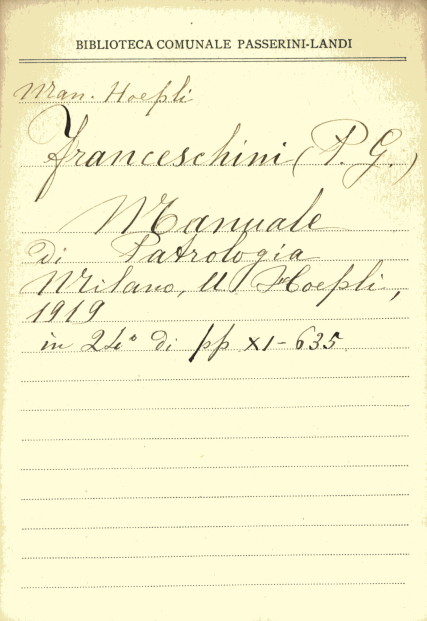 BIBLIOTECA COMUNALE PASSERINI-LANDI
Man. Hoepli
Franceschini (P. G.)
Manuale
di Patrologia
Milano, U Hoepli,
1919
in 24° di pp XI-635